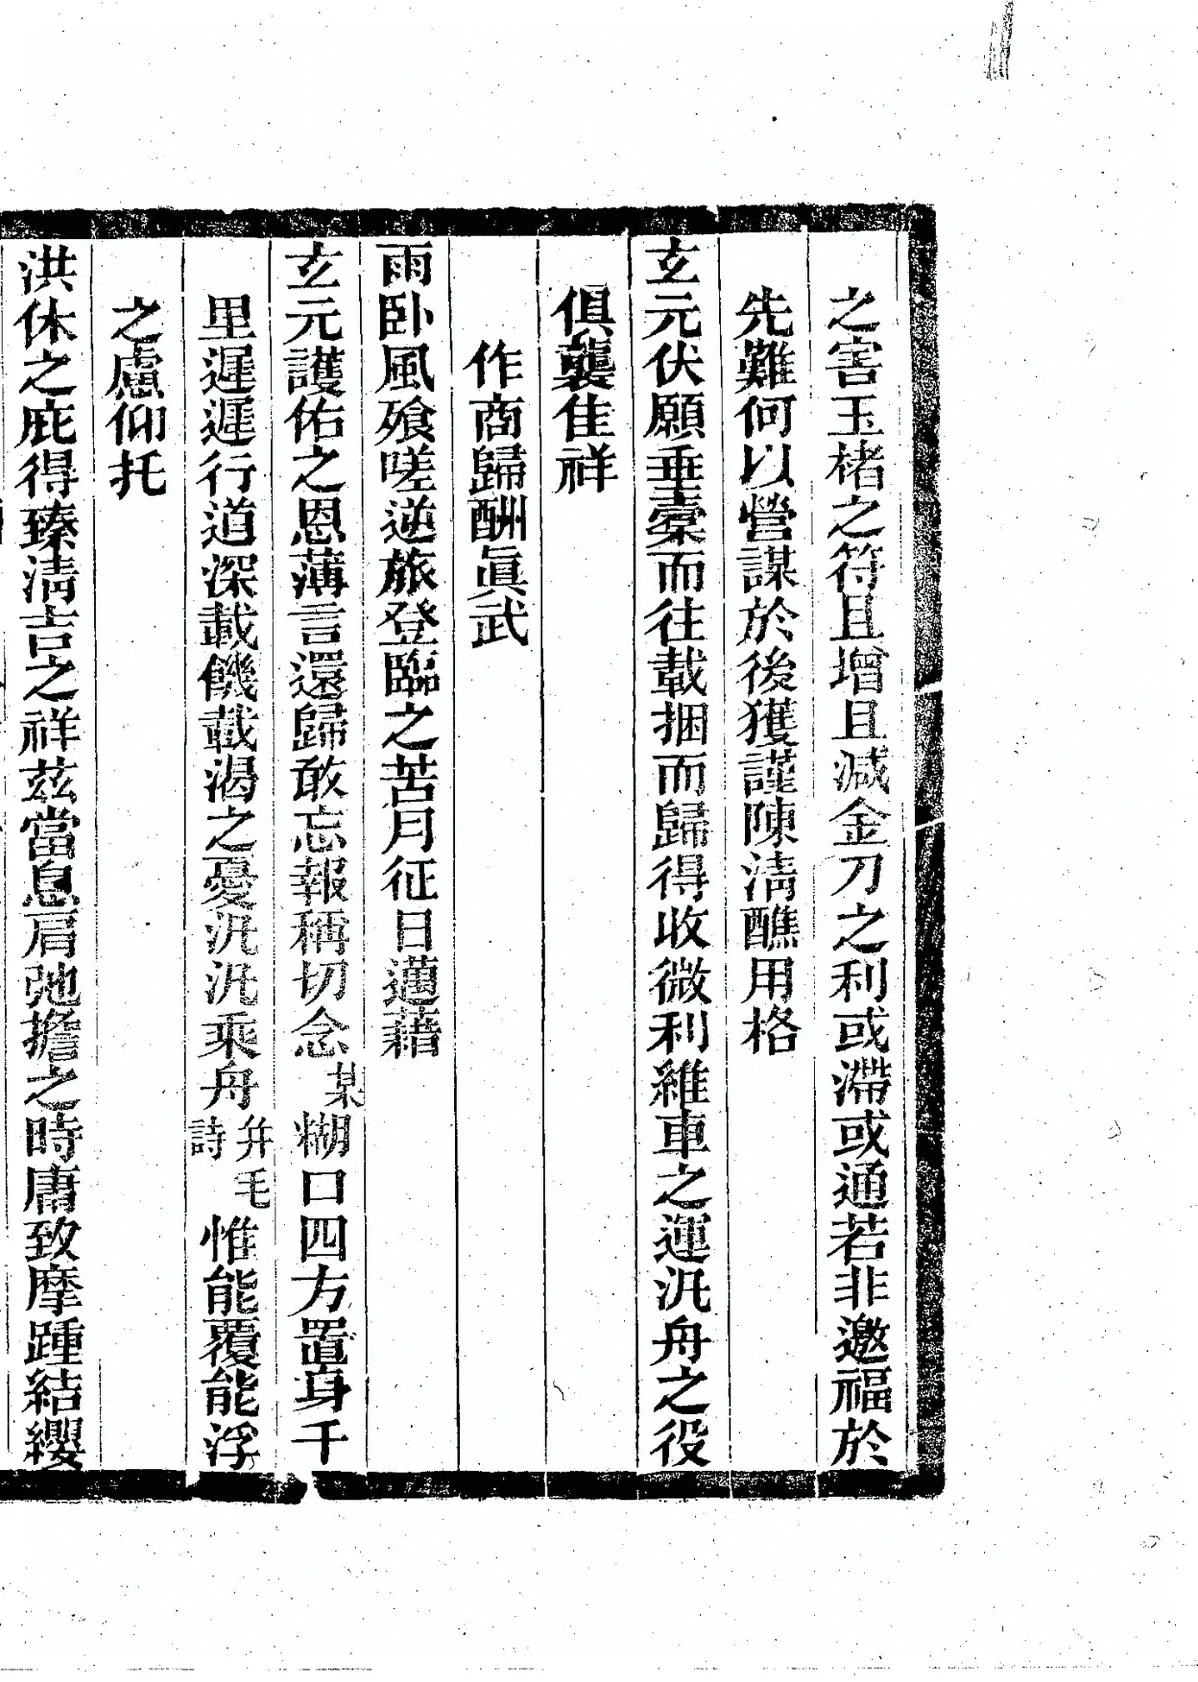 之害玉楮之符且增且減金刀之利或滯或通若非邀福於
先難何以營謀於後獲謹陳淸醮用格
玄元伏願垂橐而往載捆而歸得收微利維車之運汎舟之役
俱襲佳祥
作商歸酬眞武
雨卧風飱嗟逆旅登臨之苦月征日邁藉
玄元護佑之恩薄言還歸敢忘報稱切念某糊口四方置身千
里遲遲行道深載饑載渴之憂汎汎乘舟幷毛詩惟能覆能浮
之慮仰托
洪休之庇得臻淸吉之祥玆當息肩弛擔之時庸致摩踵結纓